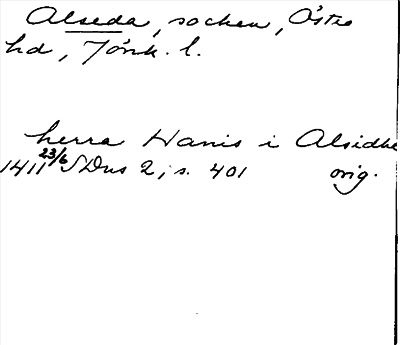 Alseda, socken, Östra
hd, Jönk. l.
herra Hanis i Alsidhe
1411 23/6 SDns 2, s. 401 orig.